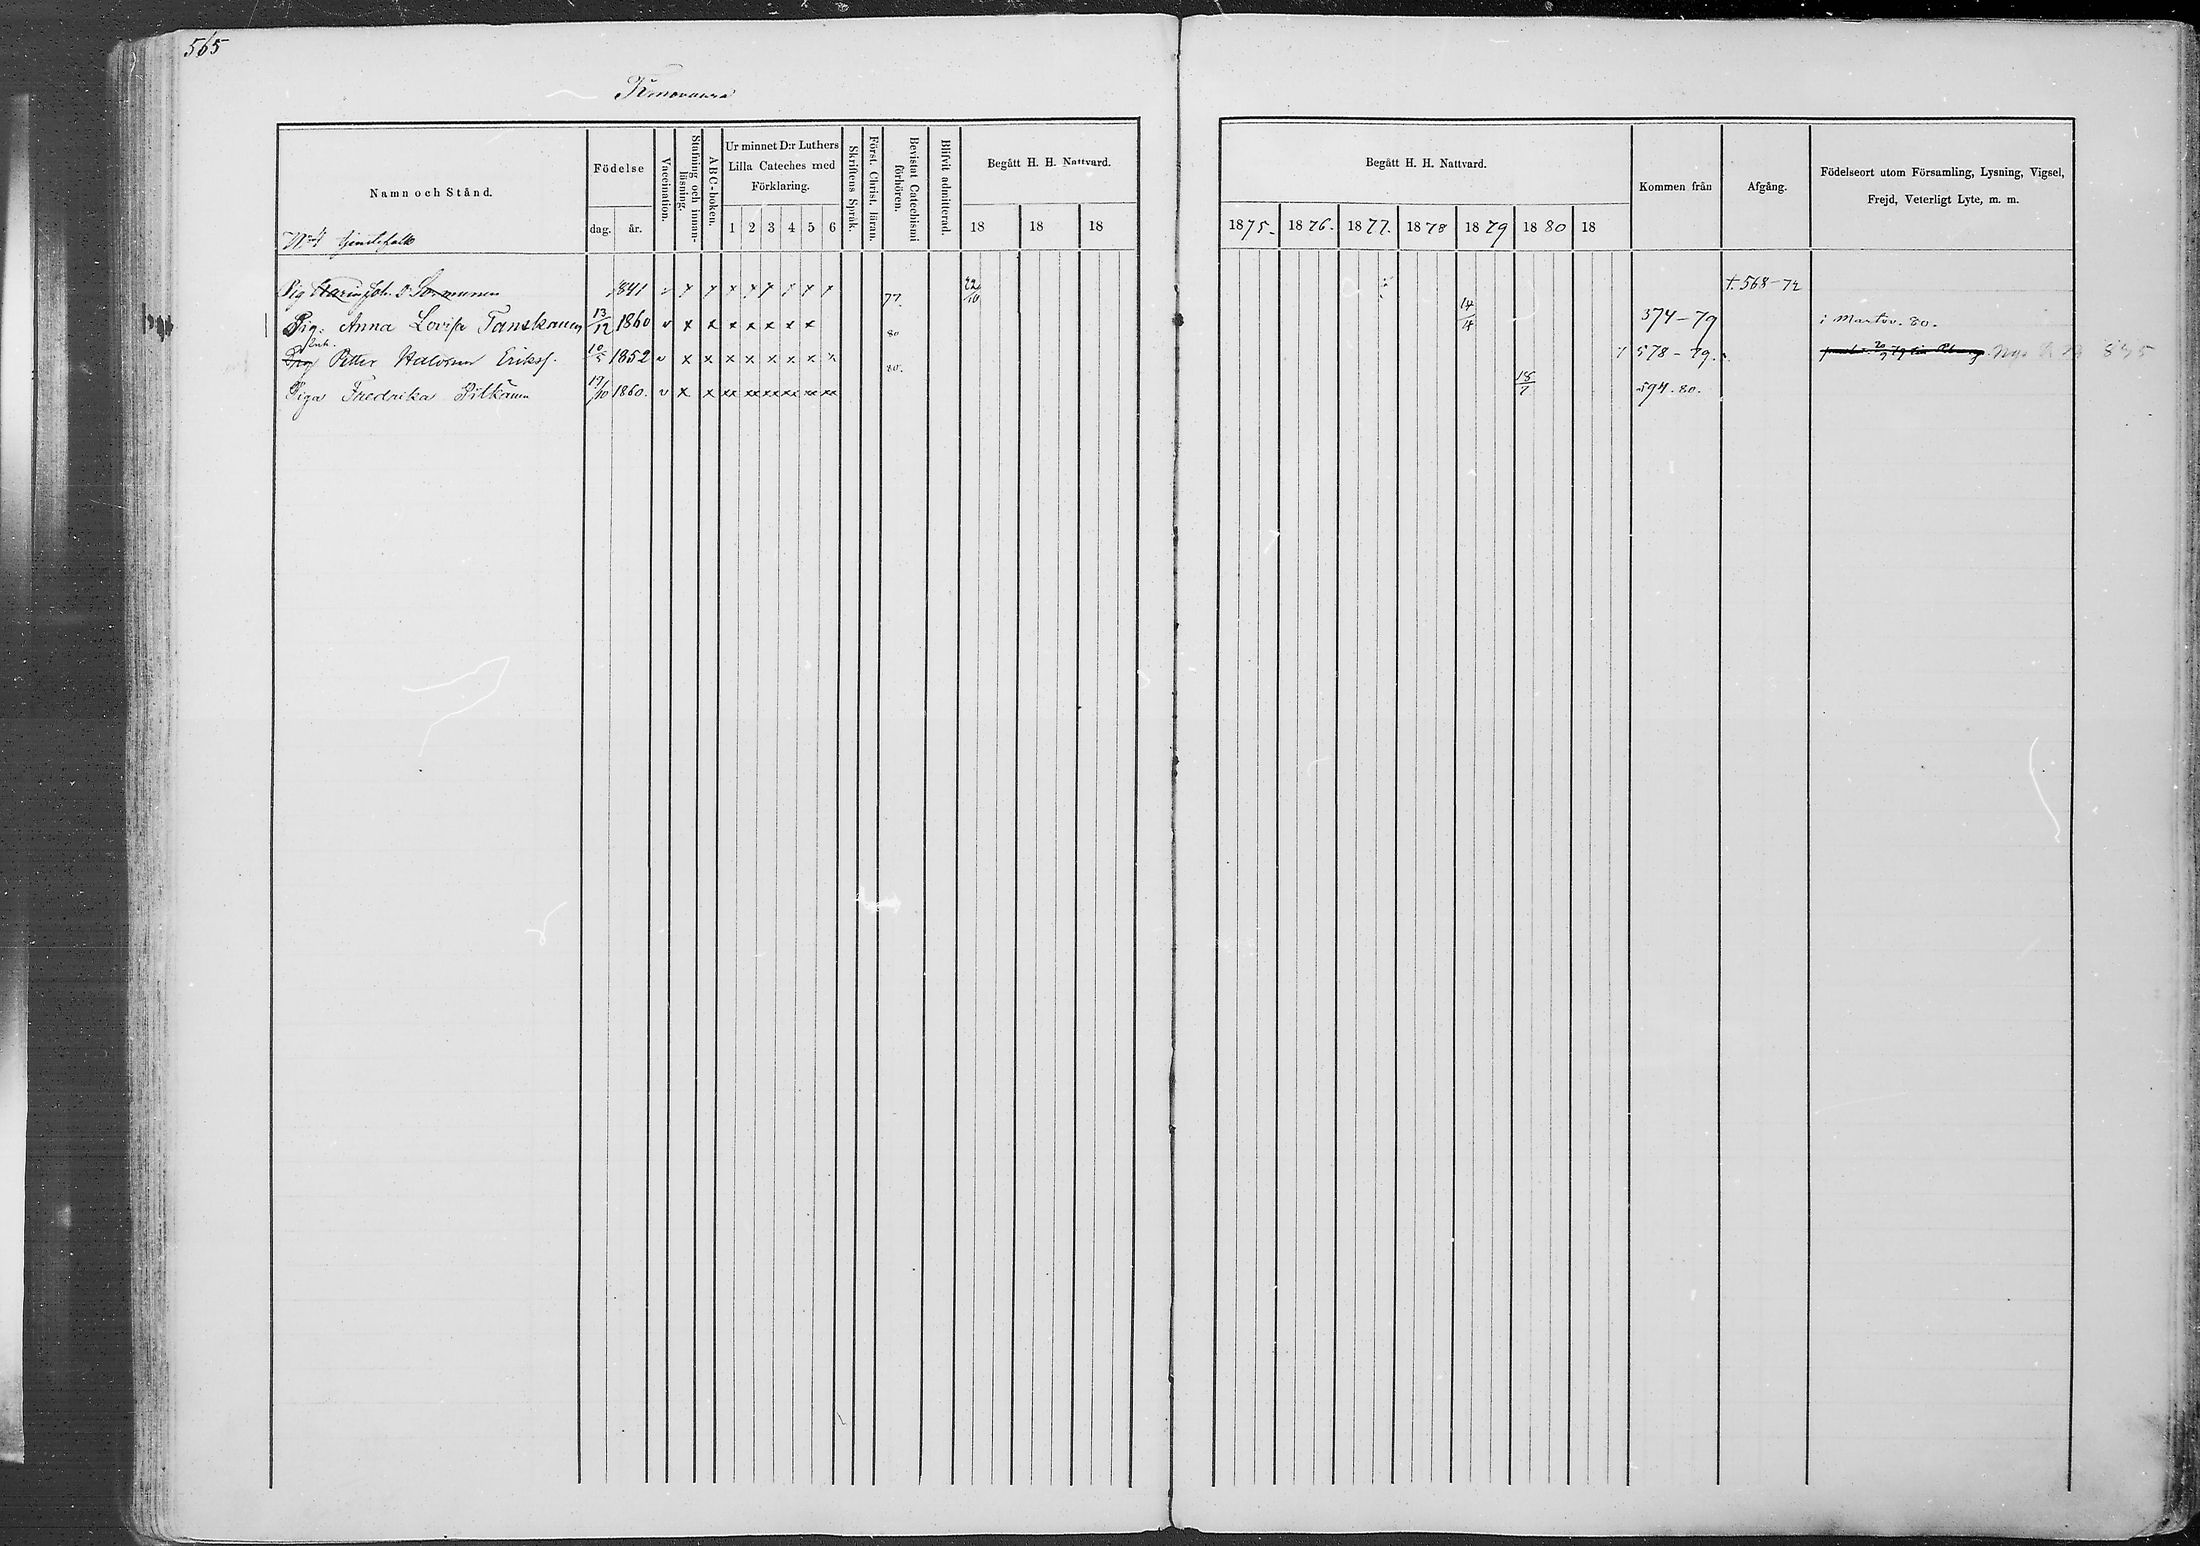 565
Namn och Stånd.
Födelse
dag. år.
Vaccination.
Stafning och innanläsning.
ABC-boken.
Ur minnet D:r Luthers
Lilla Cateches med
Förklaring.
1 2 3 4 5 6
Skriftens Språk.
Först. Christ. läran.
Bevistat Catechismi
förhören.
Blifvit admitterad.
Begått H. H. Nattvard.
18 18 18
Begått H. H. Nattvard.
1875. 1876. 1877. 1878 1879 1880 18
Kommen från
Afgång.
Födelseort utom Församling, Lysning, Vigsel,
Frejd, Veterligt Lyte, m. m.
No 4
Pig Joh. D. Sormunen 1841 v x x x x x x x x 77. 22/10 †. 568-72
Pig: Anna Lovisa Tanskanen 13/12 1860 v x x x x x x x 80 14/4 374-79 i Mantov. 80.
Enk.
Petter Halvorsen Eriksf. 10/5 1852 v x x x x x x x x 80. 578-79.
Piga Fredrika Pitkänen 19/10 1860. v x x xx xx xx xx xx xx 18/7 594.80.